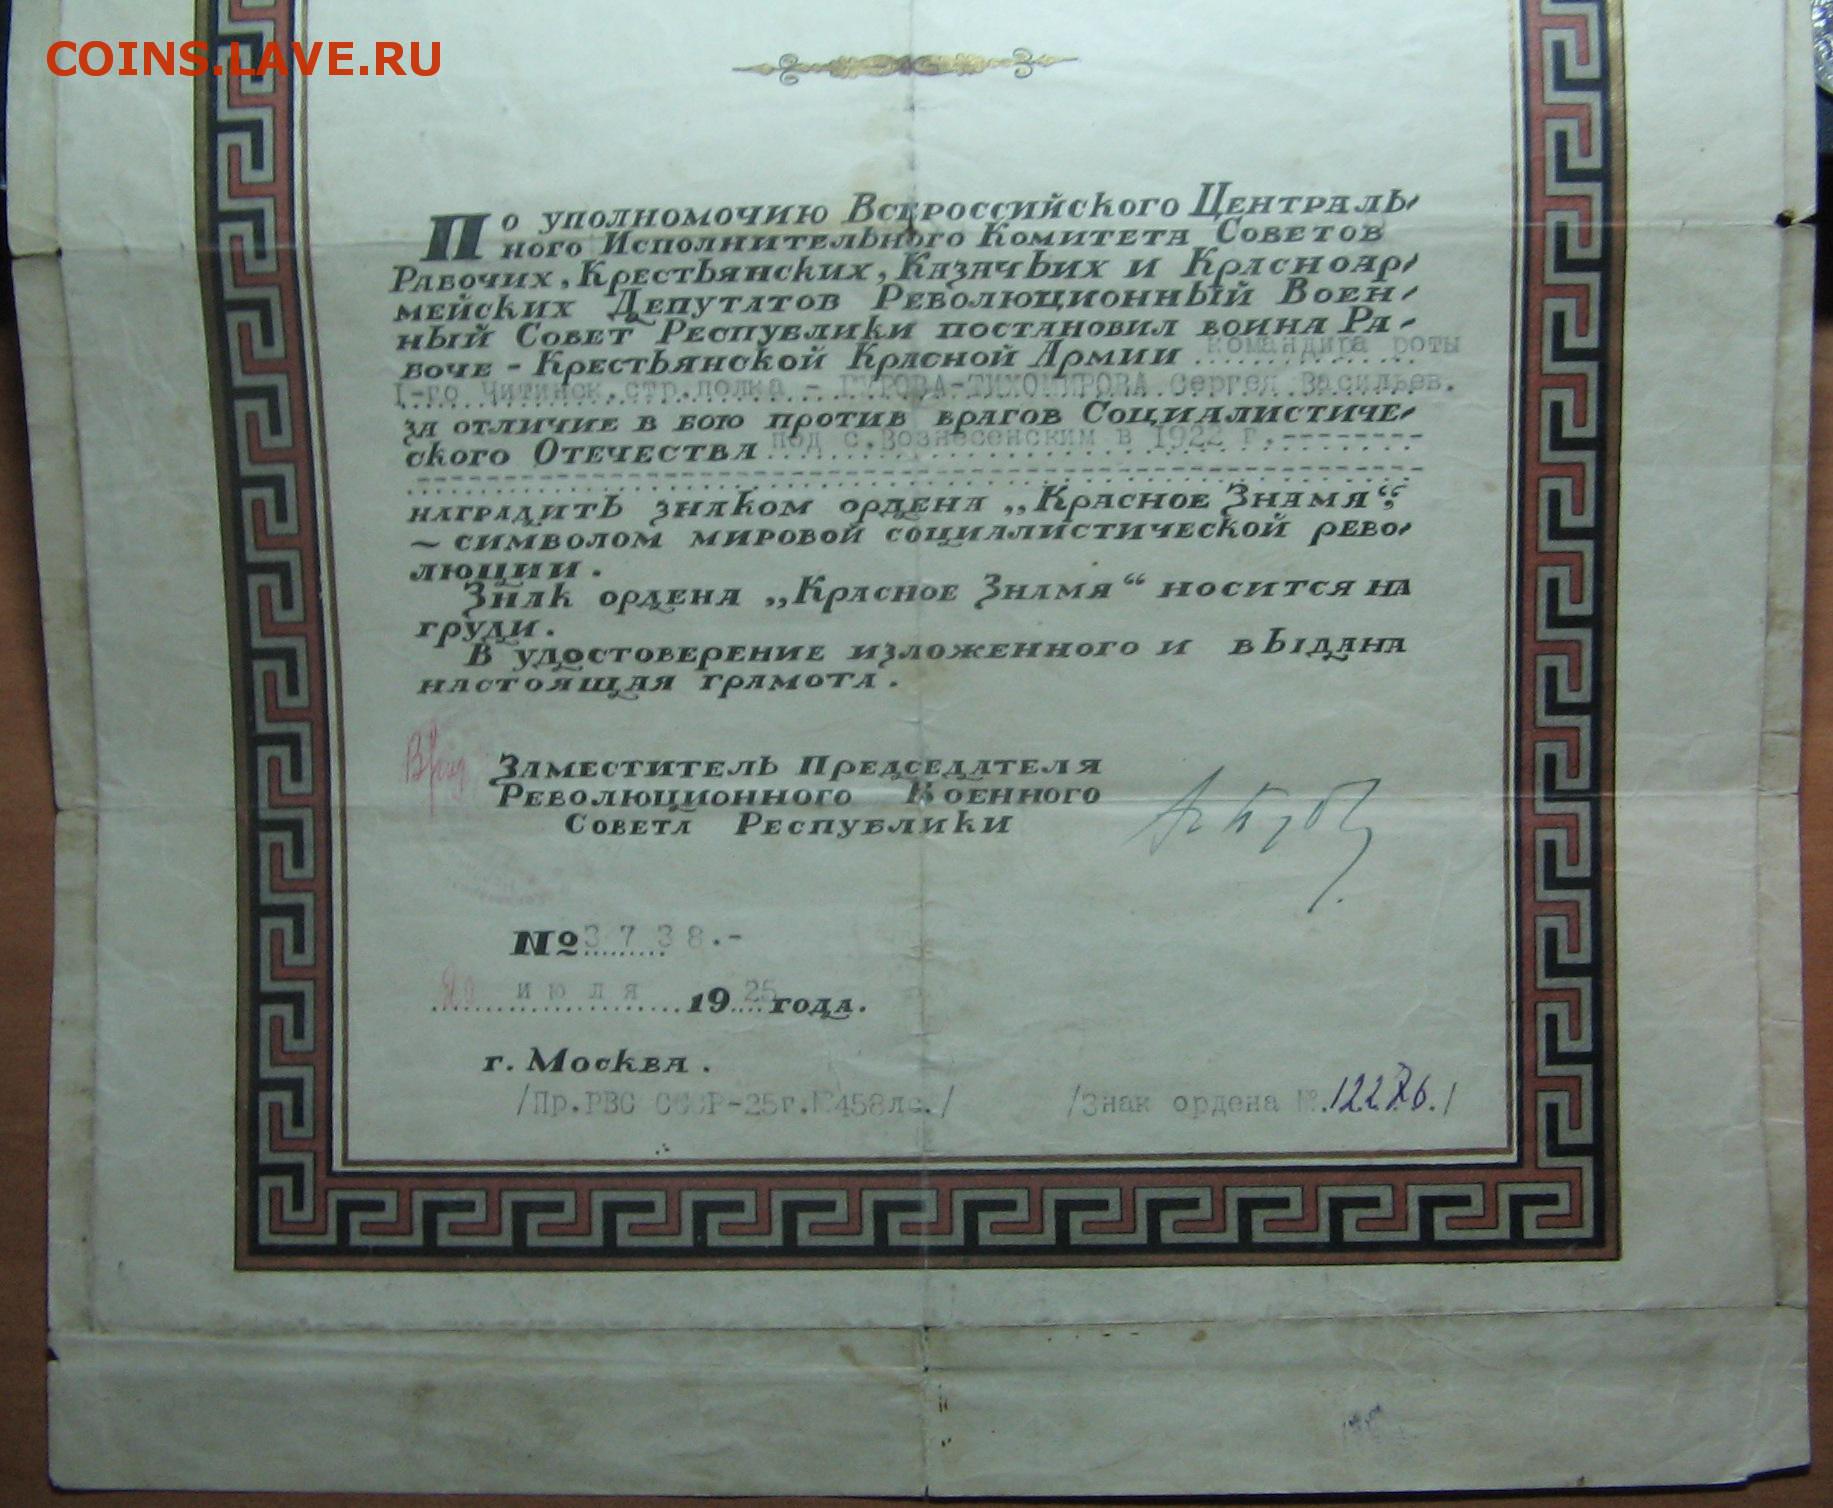 COINS.LAVE.RU
По уполномочию Всероссийского Централь-
ного Исполнительного Комитета Советов
Рабочих, Крестьянских, Казачьих и Красноар-
мейских Депутатов Революционный Воен-
ный Совет Республики постановил воина Ра-
боче-Крестьянской Красной Армии командира роты
1-го Читинск.стр.полка - ГУРОВА-ТИХОМИРОВА Сергея Васильев.
за отличие в бою против врагов Социалистиче-
ского Отечества под с.Вознесенским в 1922 г.--------
наградить знаком ордена „Красное Знамя“,
— символом мировой социалистической рево-
люции.
Знак ордена „Красное Знамя“ носится на
груди.
В удостоверение изложенного и выдана
настоящая грамота.
Врид
Заместитель Председателя
Революционного Военного
Совета Республики
№ 3738.-
20 июля 1925 года.
г. Москва.
/Пр.РВС СССР-25г.№458лс./ /Знак ордена №.12226./